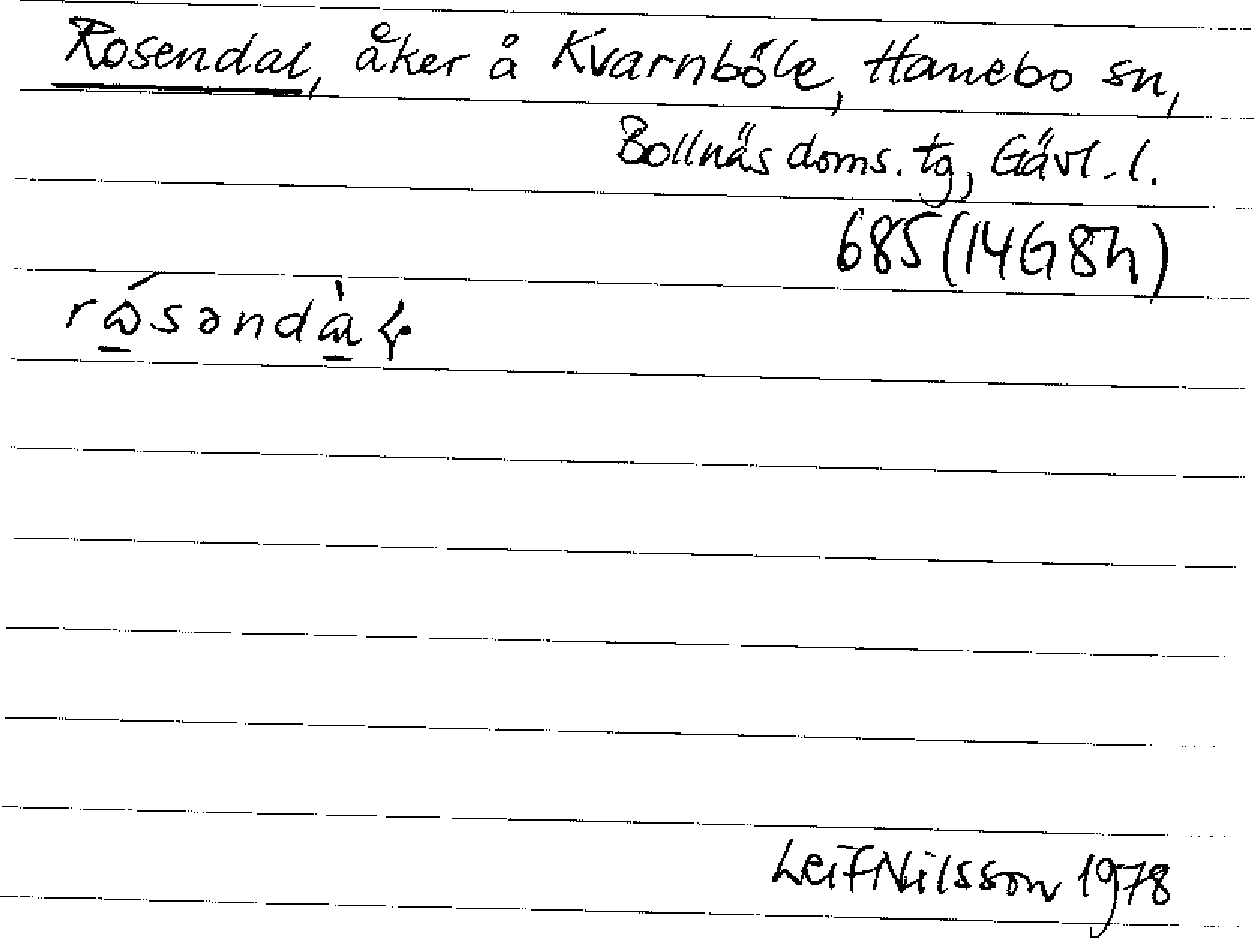 Rosendal, åker å Kvarnböle, Hanebo sn,
Bollnäs doms. tg, Gävl. l.
685 (14G8h)
Leif Nilsson 1978